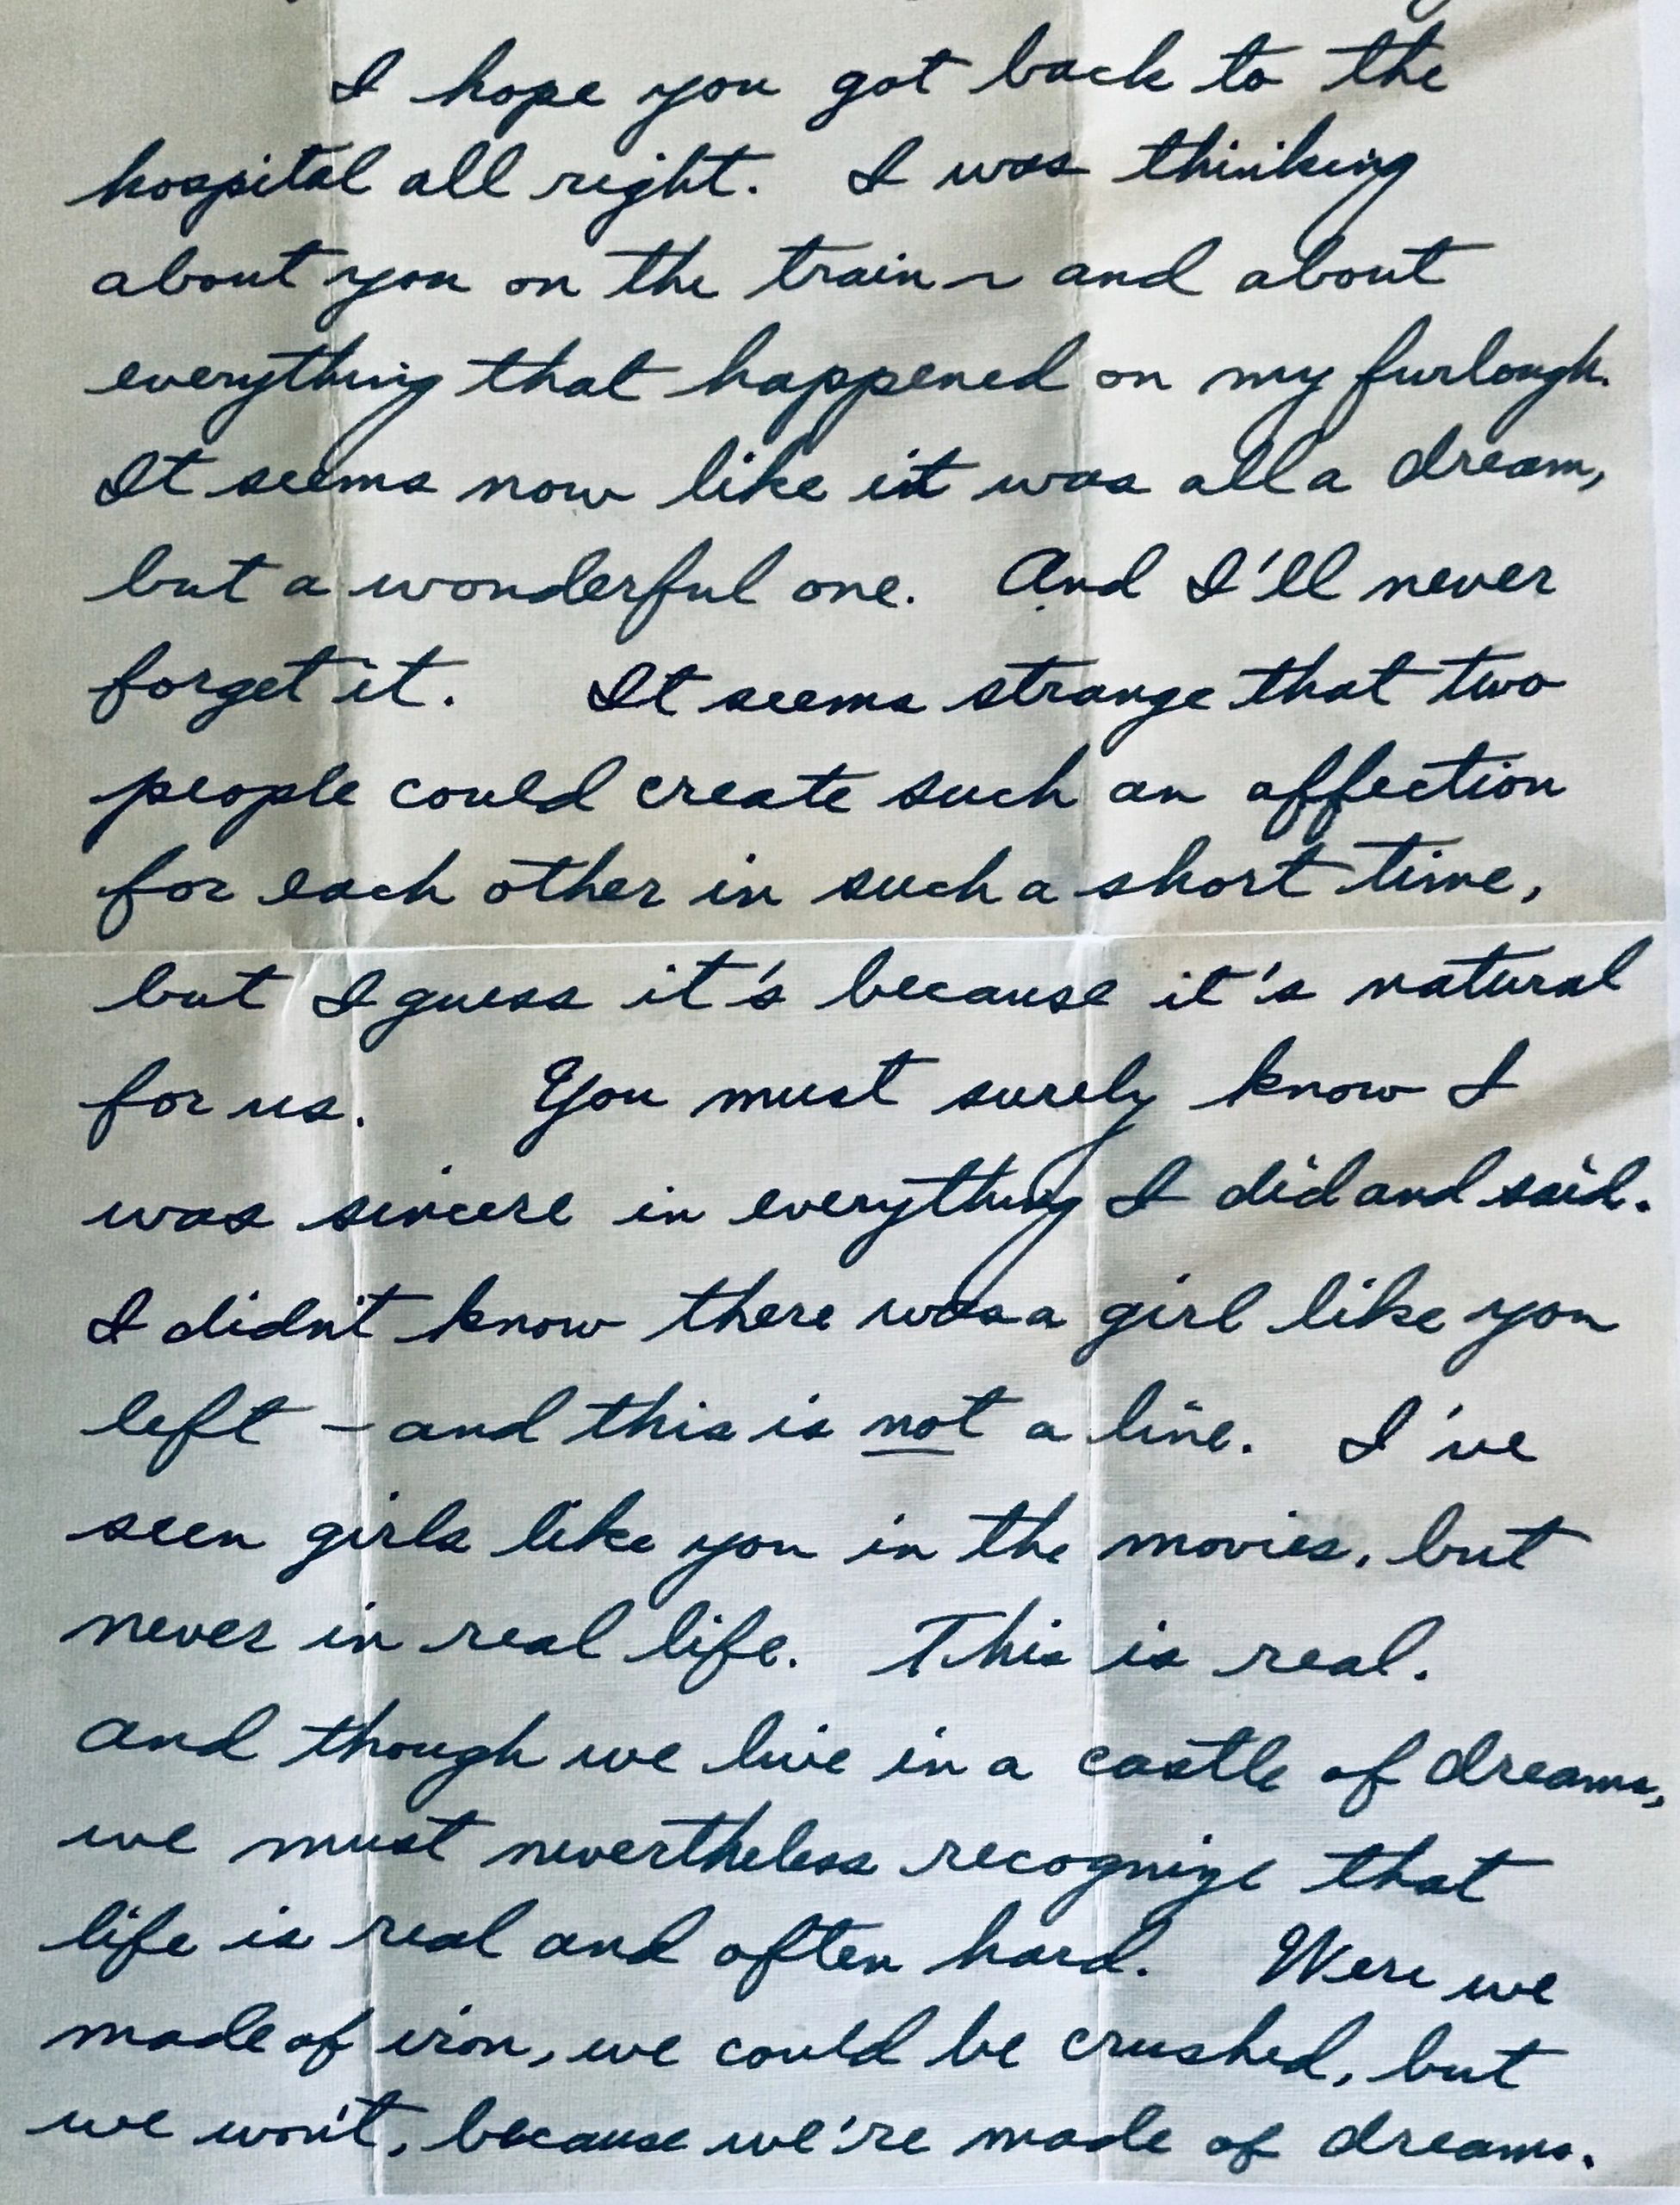 I hope you got back to the
hospital all right. I was thinking
about you on the train ~ and about
everything that happened on my furlough.
It seems now like it was all a dream,
but a wonderful one. And I'll never
forget it. It seems strange that two
people could create such an affection
for each other in such a short time,
but I guess it's because it's natural
for us. You must surely know I
was sincere in everything I did and said.
I didn't know there was a girl like you
left – and this is not a line. I've
seen girls like you in the movies, but
never in real life. This is real.
And though we live in a castle of dreams,
we must nevertheless recognize that
life is real and often hard. Were we
made of iron, we could be crushed, but
we won't, because we're made of dreams.